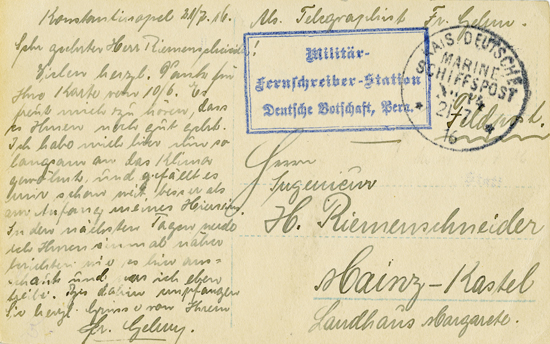 Konstantinopel 20/7.16.
Mar. Telegraphist Fr. Gehm.
Sehr geehrter Herr Riemenschneider!
Vielen herzl. Dank für
Ihre Karte vom 10/6. Es
freut mich zu hören, dass
es Ihnen noch gut geht.
Ich habe mich hier nun so
langsam an das Klima
gewöhnt, und gefällt es
mir schon viel besser als
am Anfang meines Hierseins.
In den nächsten Tagen werde
ich Ihnen einmal näher
berichten wie es hier aus-
schaut und was ich eben
Bis dahin empfangen
Sie herzl. Grüsse von Ihrem
Fr.
Militär-
Fernschreiber-Station
Deutsche Botschaft, Pera.
KAIS. DEUTSCHE
MARINE-
SCHIFFSPOST
No 14
21/7
16
Feldpost.
Herrn
Ingenieur
H. Riemenschneider
Mainz-Kastel
Landhaus Margarete.